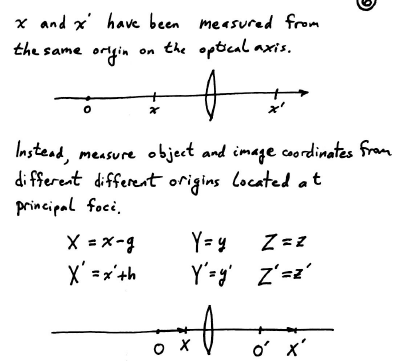 6
x and x' have been measured from
the same origin on the optical axis.
o x x'
Instead, measure object and image coordinates from
different different origins located at
principal foci.
X = x-g Y=y Z=z
X' = x'+h Y'=y' Z'=z'
O X O' X'